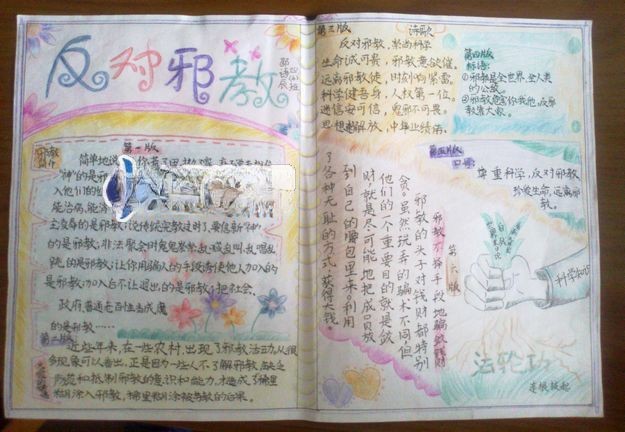 反对邪教
第一版
简单地说
的是邪教
能治病,能消
的是邪教,非法聚会时鬼鬼祟祟,或哭或叫,或唱或
跳,的是邪教;让你用骗人的手段诱使他人加入的
是邪教;加入后不让退出的是邪教;把社会、
政府、普通老百姓当成魔
的是邪教……
第二版
近些年来,在一些农村,出现了邪教活动,从很
多现象可以看出,正是因为一些人不了解邪教,缺乏
和抵制邪教的意识和能力,才造成了稀里
糊涂入邪教,稀里糊涂被邪教的后果。
第三版
诗歌
反对邪教,崇尚科学
生命诚可贵,邪教意欲催。
远离邪教徒,时刻响紧雷。
科学健吾身,人权第一位。
迷信安可信,鬼邪不可畏。
思想解放,中华业绩伟。
第四版
标语:
①邪教是全世界、全人类
的公敌。
第五版
口号:
尊重科学,反对邪教
珍爱生命,远离邪
教。
第六版
邪教不择手段地骗敛钱财
邪教的头子对钱财都特别
贪。虽然玩弄的骗术不同,但
他们的一个重要目的就是敛
财,就是尽可能地把成员放
到自己的腰包里来。利用
了各种无耻的方式获得大钱。
科学知识
法轮功
连根拔起